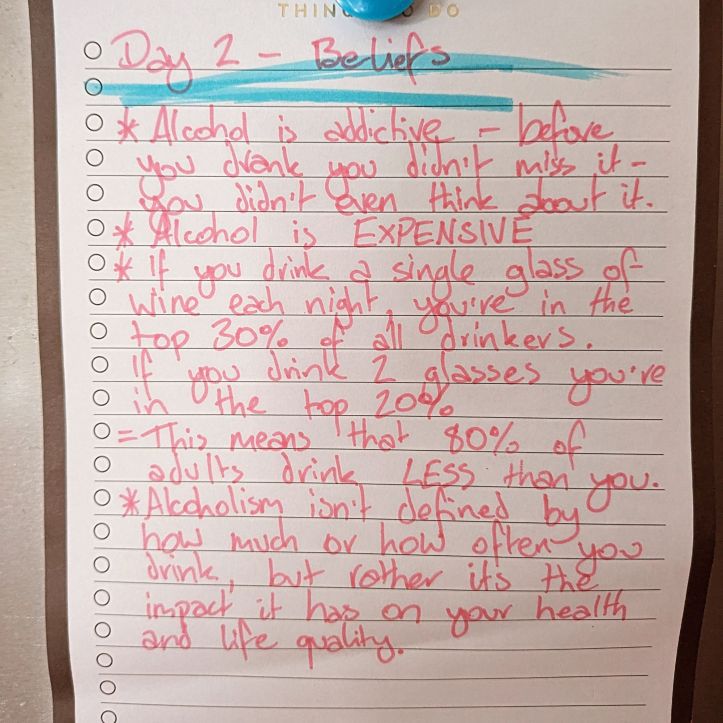 THINGS TO DO
Day 2 - Beliefs
* Alcohol is addictive - before
you drank you didn't miss it -
you didn't even think about it.
* Alcohol is EXPENSIVE
* If you drink a single glass of
wine each night, you're in the
top 30% of all drinkers.
If you drink 2 glasses you're
in the top 20%
= This means that 80% of
adults drink LESS than you.
* Alcoholism isn't defined by
how much or how often you
drink, but rather its the
impact it has on your health
and life quality.